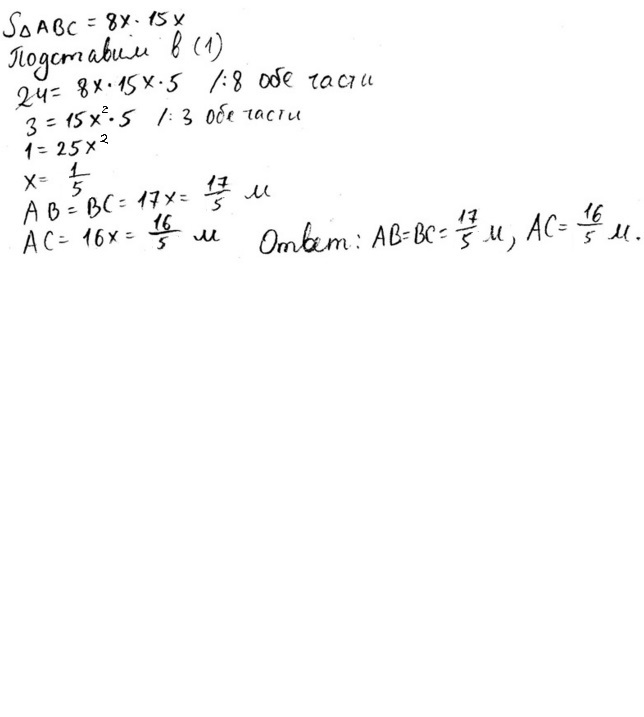 S△ABC = 8x · 15x
Подставим в (1)
24 = 8x · 15x · 5 /:8 обе части
3 = 15x² · 5 /:3 обе части
1 = 25x²
x = 1/5
AB = BC = 17x = 17/5 м
AC = 16x = 16/5 м Ответ: AB=BC= 17/5 м, AC= 16/5 м.